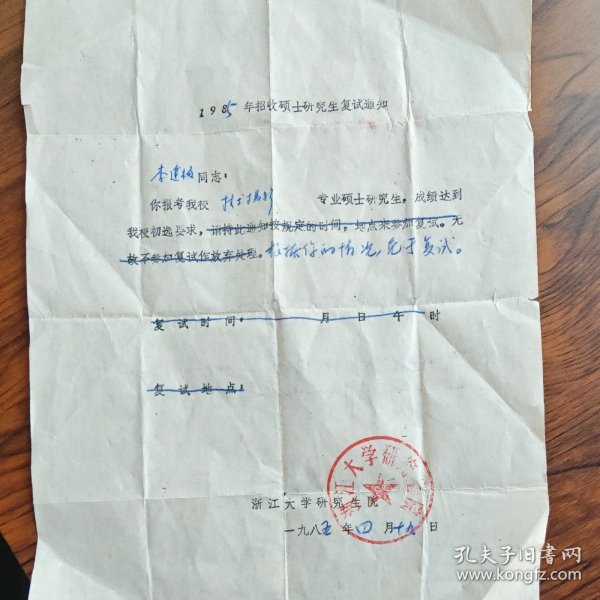 1985年招收硕士研究生复试通知
李建 同志:
你报考我校 专业硕士研究生,成绩达到
我校初选要求,请持此通知按规定的时间,地点来参加复试。无
故不参加复试作放弃处理。根据你的情况,免于复试。
复试时间: 月 日 午 时
复试地点:
浙江大学研究生院
浙江大学研究生院
一九八五年四月十九日
孔夫子旧书网
www.kongfz.com